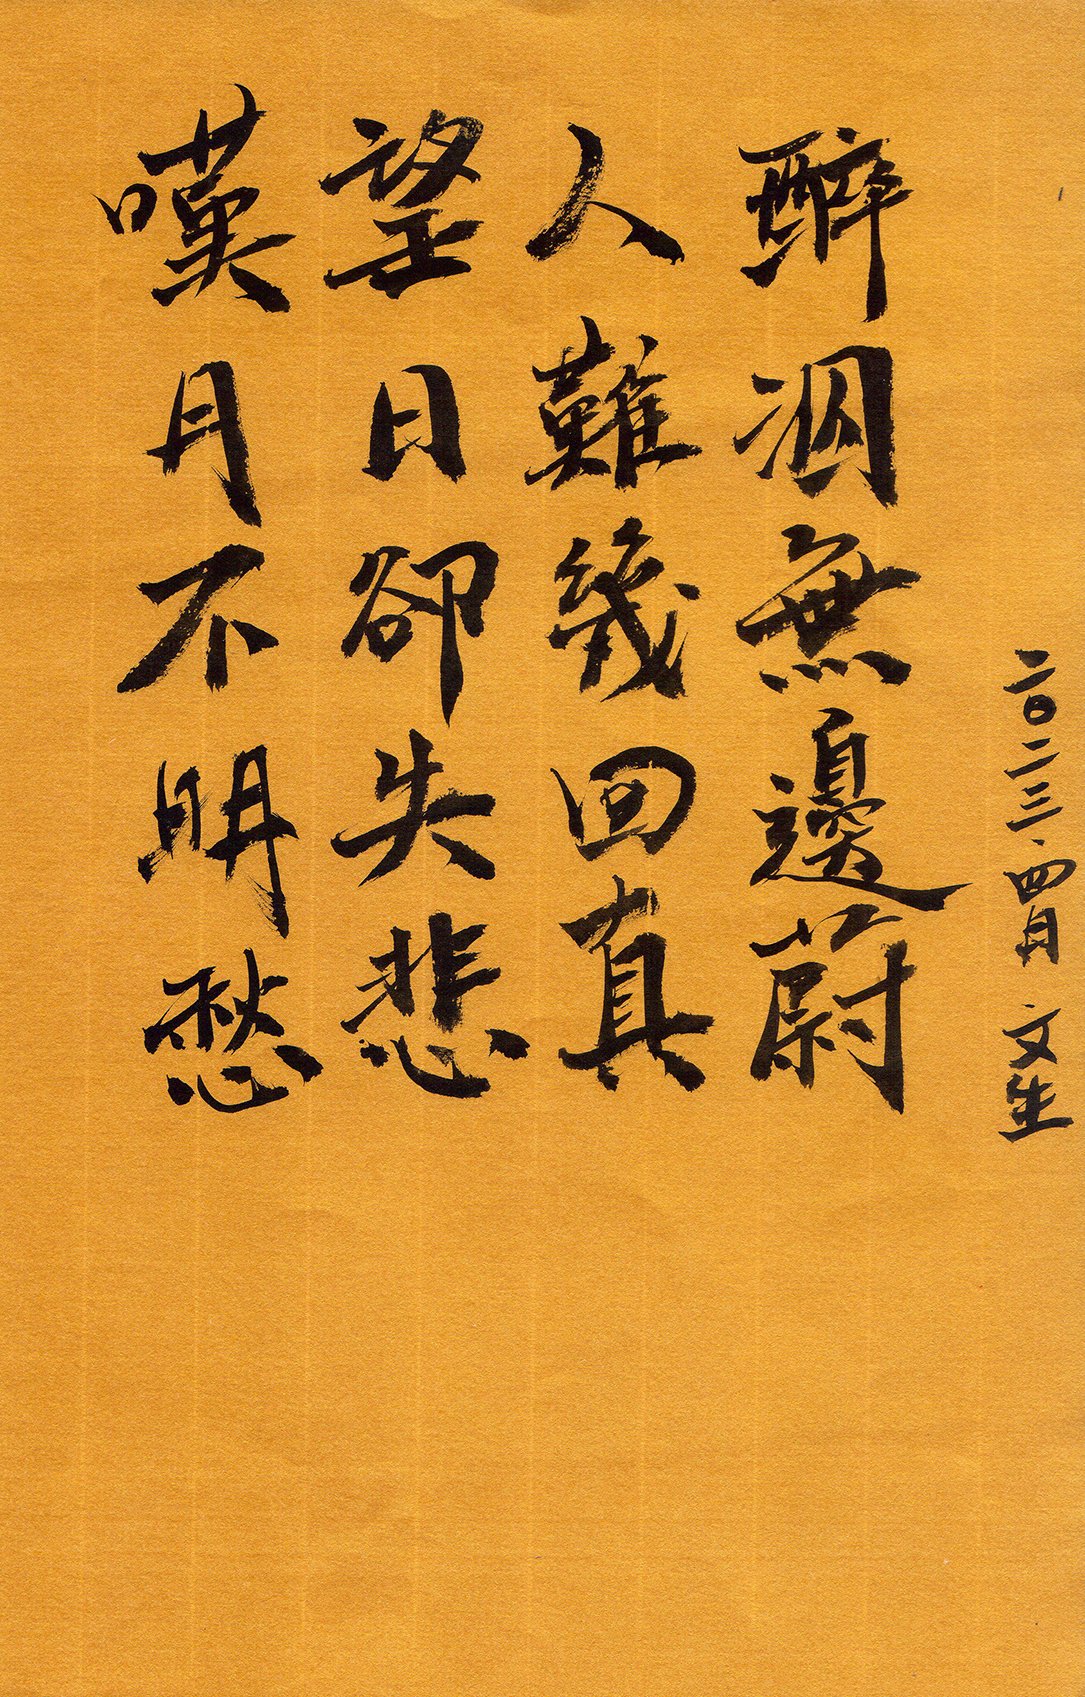 二〇二三·四月 文生
醉涃無邊蔚
人難幾回真
望日卻失悲
嘆月不明愁